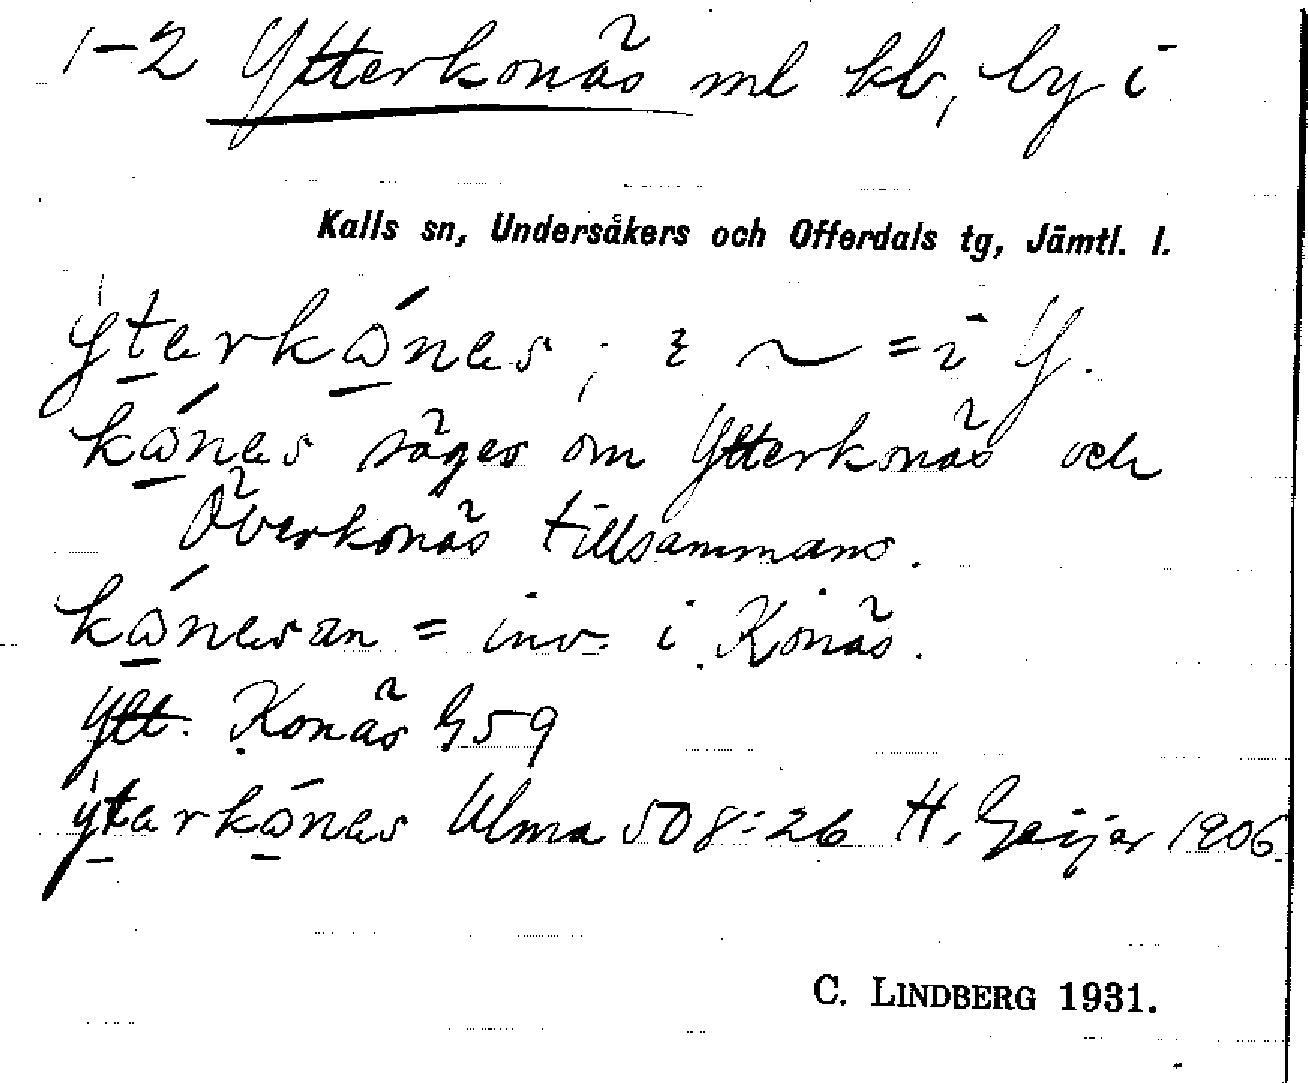 1-2 Ytterkonäs ml kb, by i
Kalls sn, Undersåkers och Offerdals tg, Jämtl. l.
ỳtərkǿnəs; i ~ = i Y.
kǿnəs säges om Ytterkonäs och
Överkonäs tillsammans.
kǿnəsan = inv. i Konäs.
Ytt. Konäs G59
ỳtərkǿnəs Ulma 508:26 H. Geijer 1906.
C. LINDBERG 1931.